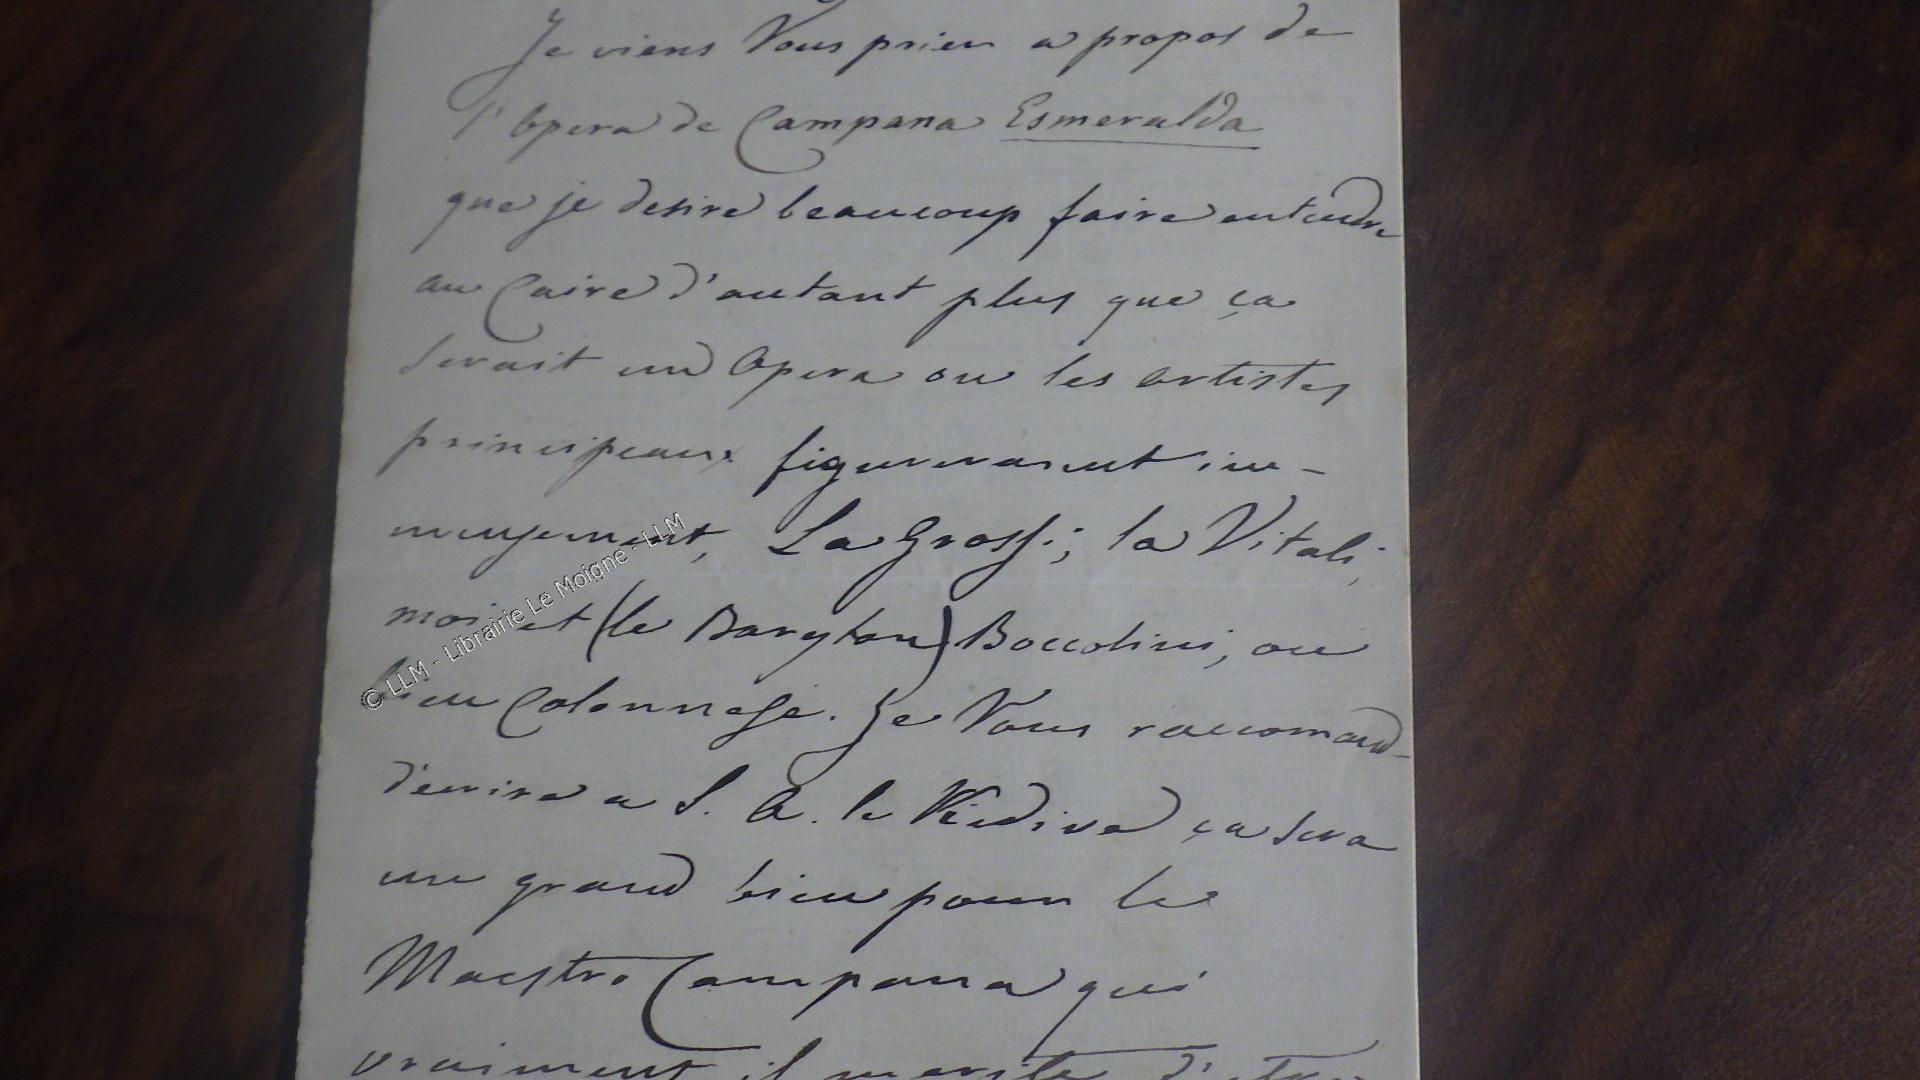 Je viens Vous prier a propos de
l'Opera de Campana Esmeralda
que je desire beaucoup faire entendre
au Caire d'autant plus que ça
serait un Opera ou les artistes
principeaux figureraient im-
mensement, La Grossi, la Vitali,
moi et (le Baryton) Boccolini, ou
bien Colonnese. Je Vous raccomand
d'ecrire a S. A. le Kiedive ça sera
un grand bien pour le
Maestro Campana qui
vraiment il merite d'etre
© LLM - Librairie Le Moigne - LLM